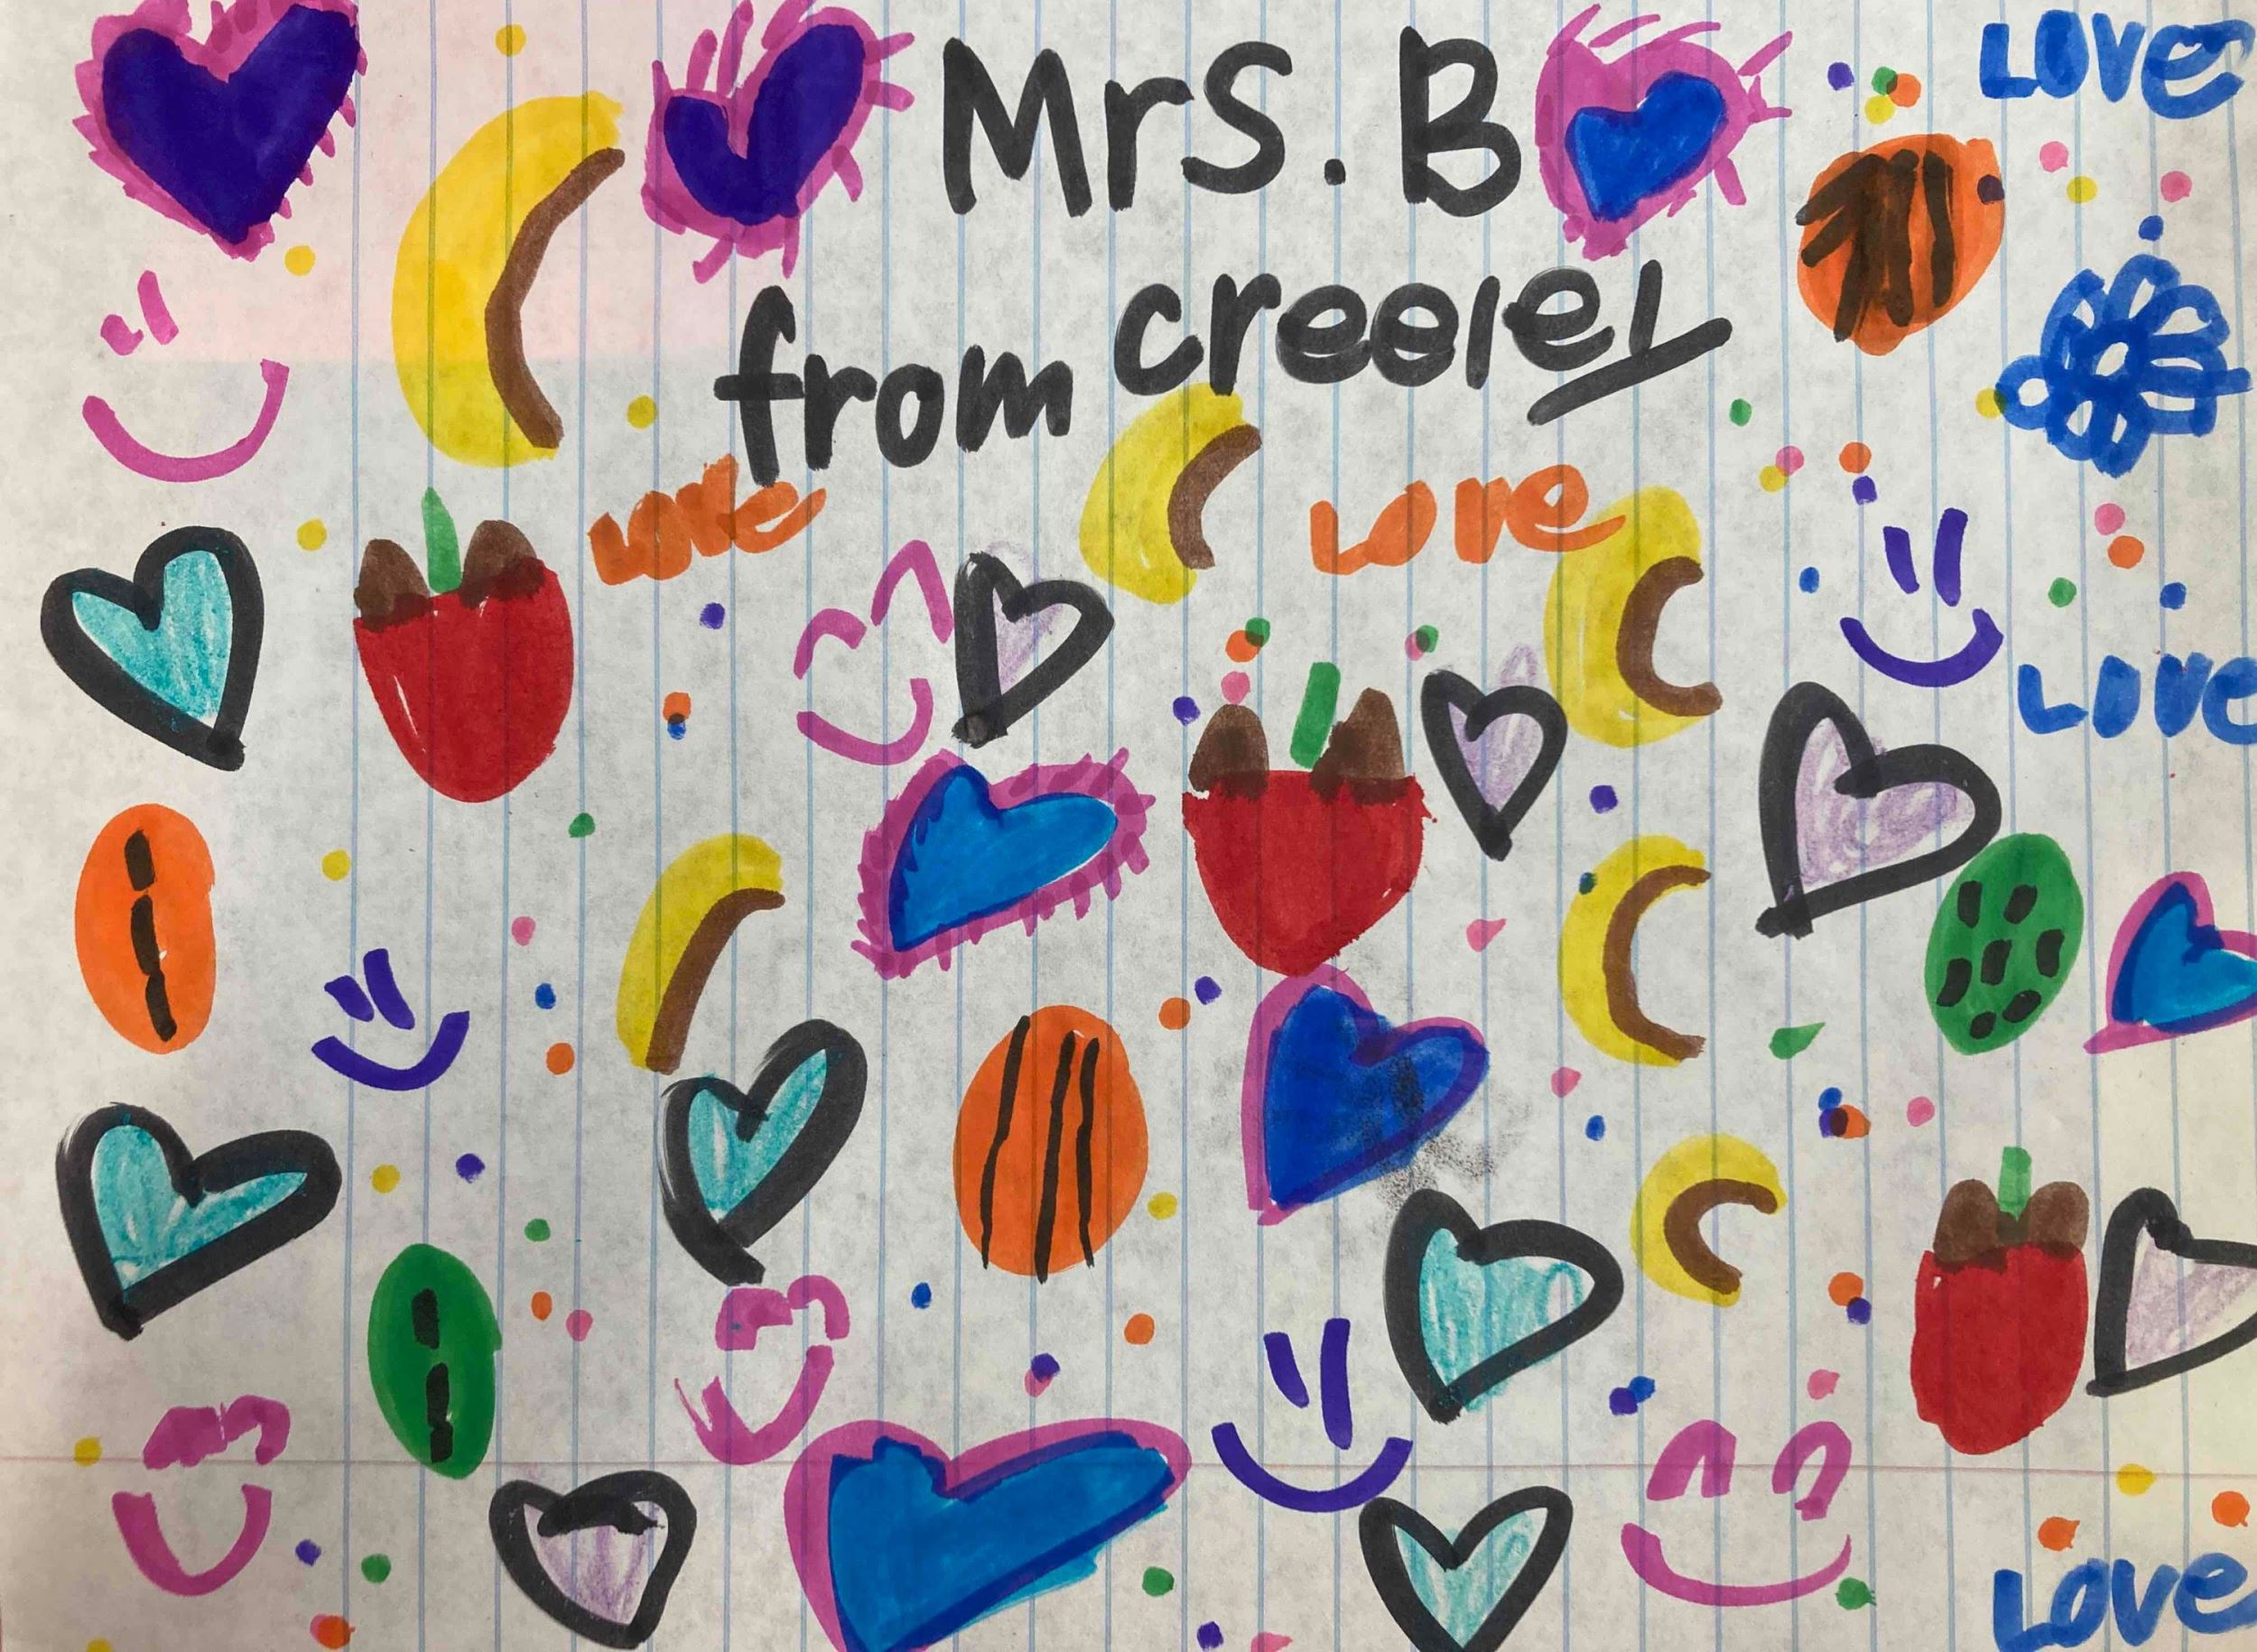 Mrs. B
LOVE
from creeley
Love
Love
LOVE
Love